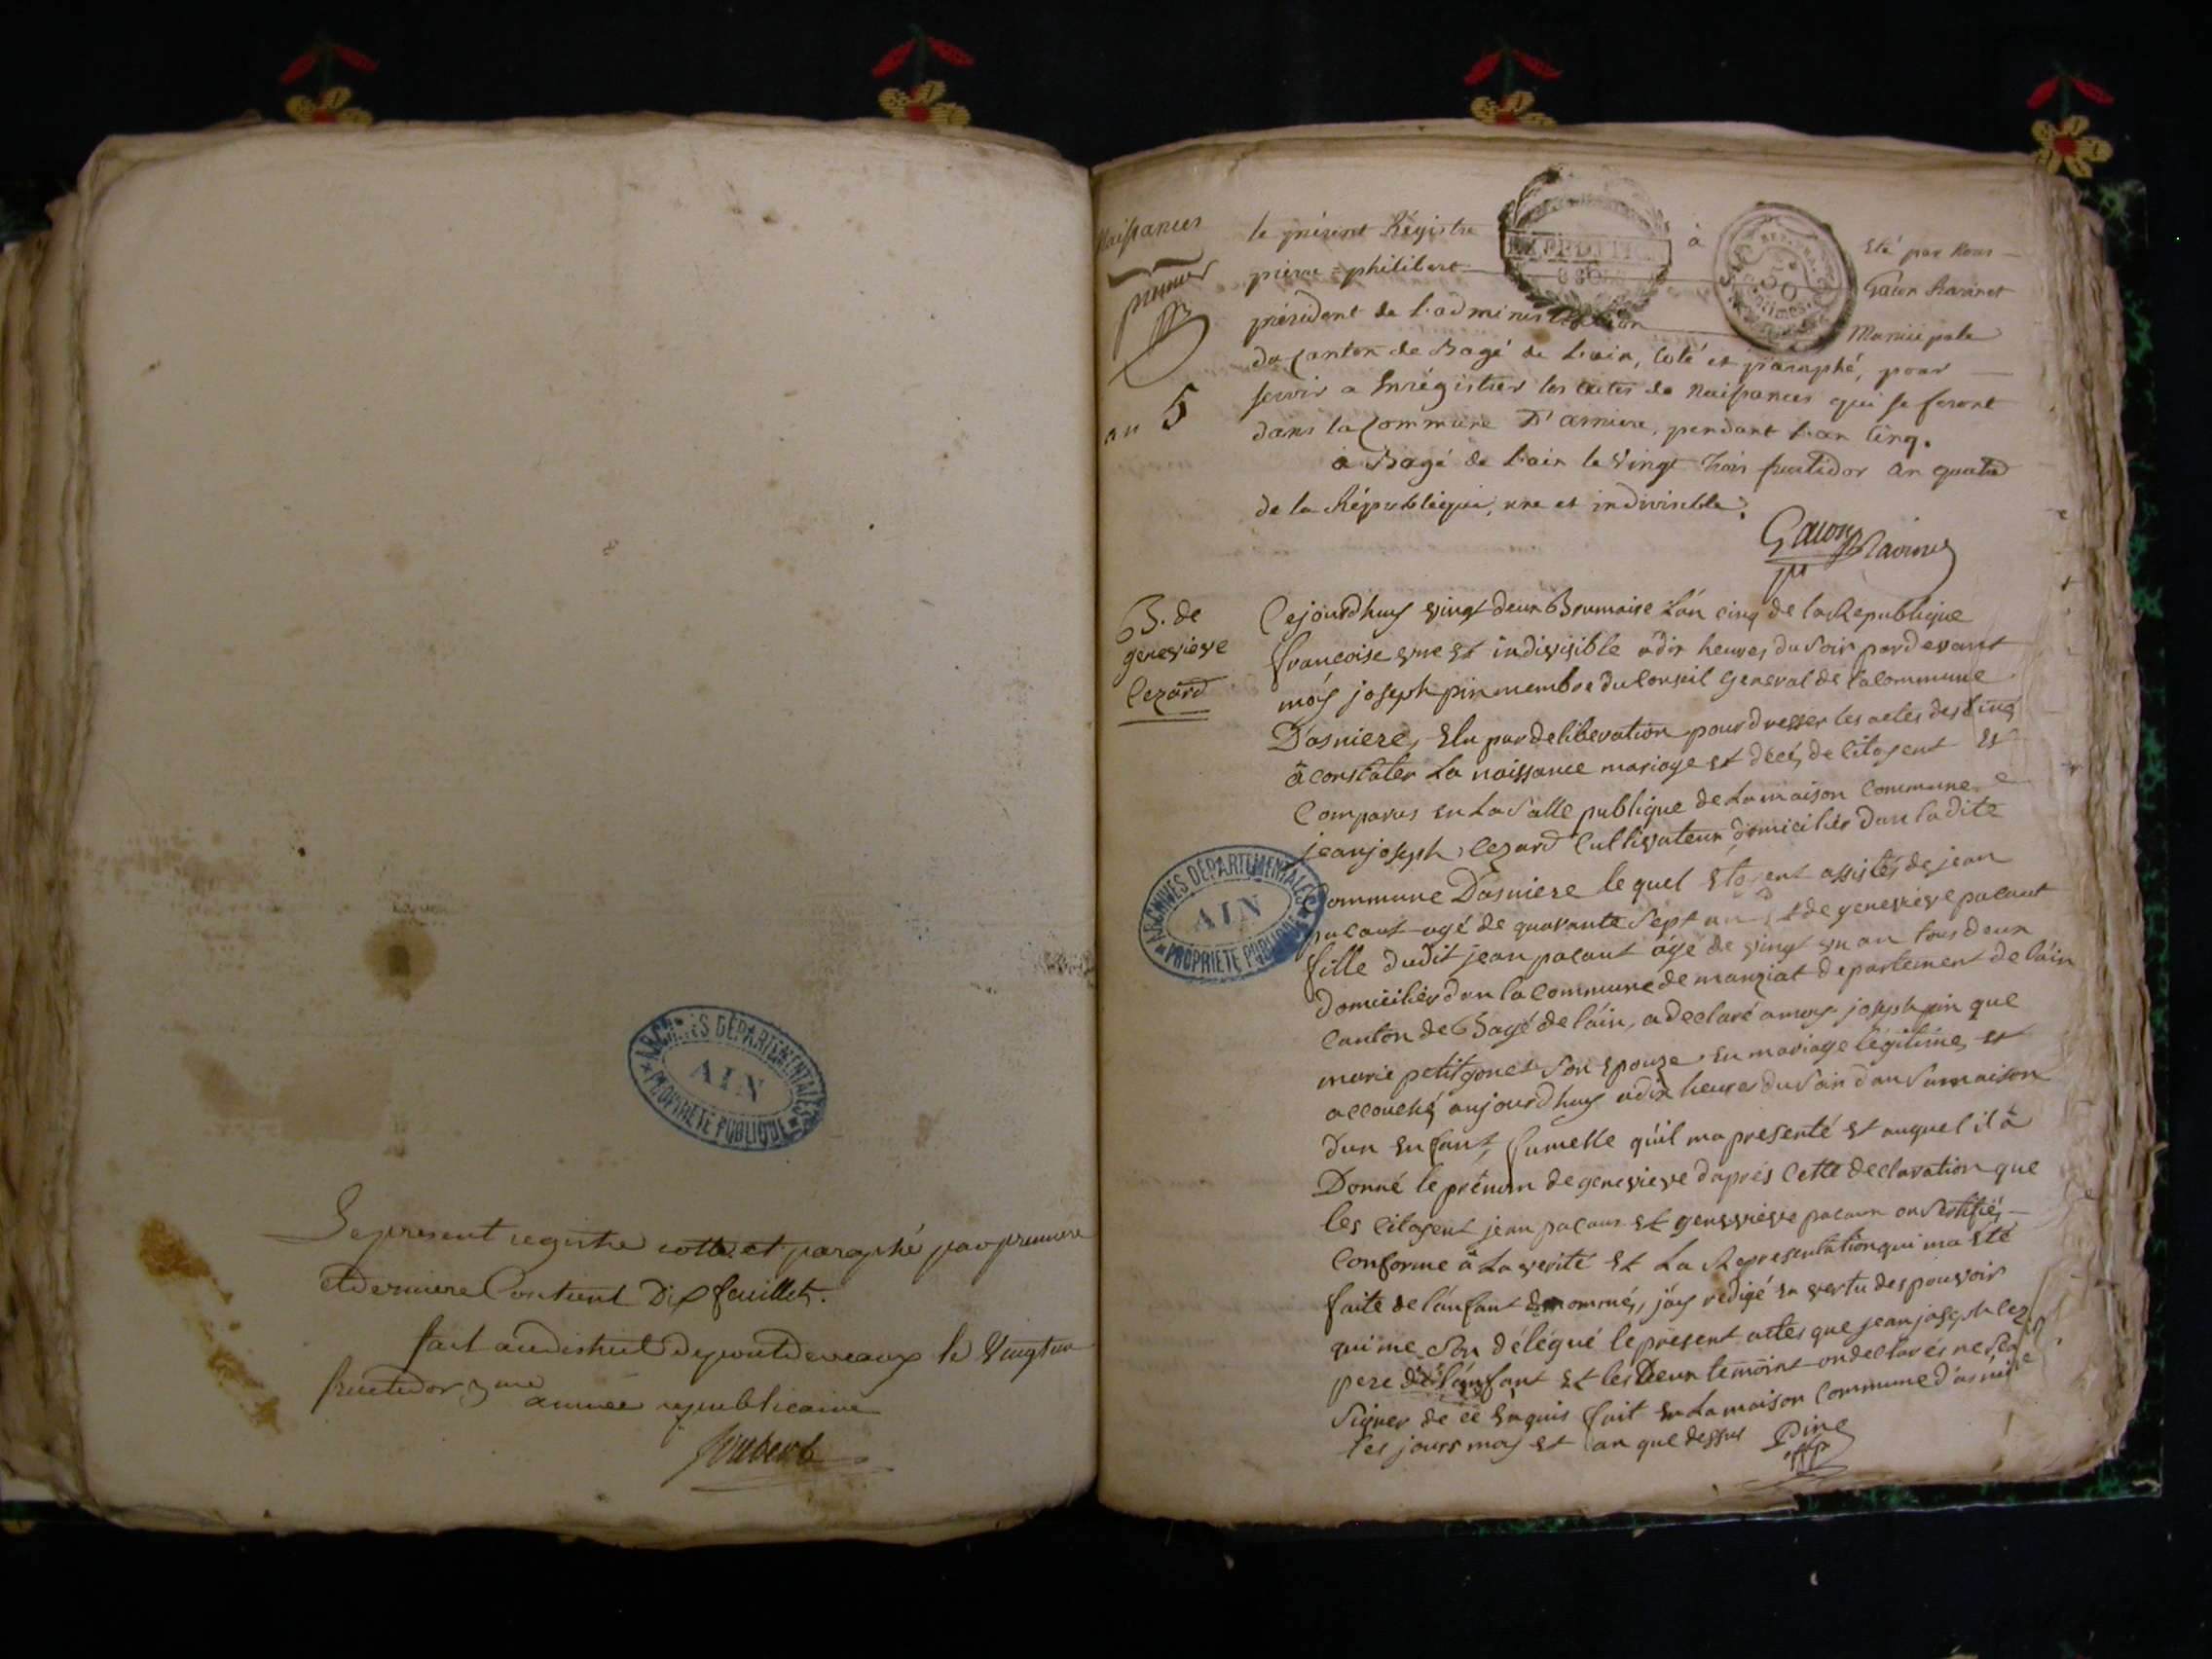 Le present registre cotté et paraphé par premiere
et derniere Contient Dix feuillets.
fait au district de pontdevaux le Vingt un
fructidor 3me année republicaine
Joubert
ARCHIVES DÉPARTEMENTALES
AIN
PROPRIÉTÉ PUBLIQUE
Naissances
premier
an 5
le présent Régistre à Eté par Nous
pierre=philibert Gacon Ravinet
président de l'administration Municipale
du Canton de Bagé de l'ain, coté et paraphé, pour
servir a Enrégistrer les actes de Naissances qui se feront
dans la Commune D'asniere, pendant l'an Cinq.
à Bagé de l'ain le Vingt trois fructidor an quatre
de la République, une et indivisible.
Gacon Ravinet
B. de
genevieve
Cezard
Cejourdhuy vingt deux Brumaire L'an cinq de la Republique
francoise une Et indivisible a dix heures du soir pardevant
moy joseph pin membre du Conseil General de la Commune
Dasniere, Elu par deliberation pour dresser les actes destiné
à constater La naissance mariage Et décé de citoyent Et
Comparus En La Salle publique de La maison Commune
jean joseph Cezard Cultivateur domicilié dan ladite
Commune Dasniere le quel Etoyent assistés de jean
pacaut agé de quarante sept an Et de genevieve pacaut
fille dudit jean pacaut agé de vingt un an tous deux
domiciliés dan la Commune de manziat departement de lain
Canton de Bagé de láin, a declaré a moy joseph pin que
marie petitgonet Son Epouze En mariage légitime, Et
accouché, aujourdhuy a dix heures du Soir dan Sa maison
dun Enfant, fumelle quil ma presenté Et auquel il à
Donné le prénom de genevieve daprés Cette declaration que
les Citoyent jean pacaut Et genevieve pacaut on Sertifié,
Conforme à La verité Et La Representation qui ma Eté
faite de lánfant denommé, jáy redigé En vertu des pouvoir
qui me Son délégué le present actes que jean joseph Cezard
pere de lánfant Et les Deux temoint on declarés ne Sca
Signer de ce Enquis fait En La maison Commune dásniere
les jours moy Et an que dessus Pin
ARCHIVES DÉPARTEMENTALES
AIN
PROPRIÉTÉ PUBLIQUE